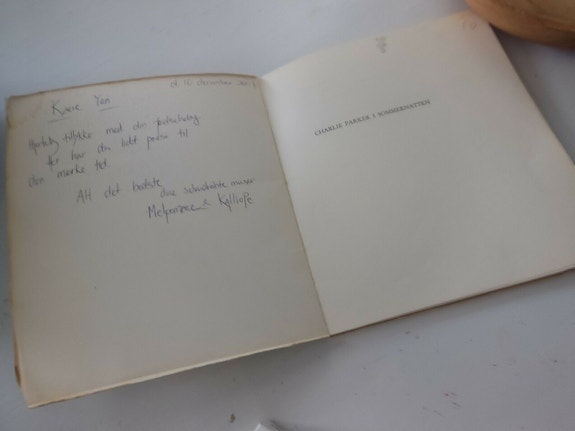 d. 16 december
Kære Yon
Hjertelig tillykke med din fødselsdag
Her har du lidt poesi til
den mørke tid.
Alt det bedste
dine muser
Melpomene & Kalliope
CHARLIE PARKER I SOMMERNATTEN